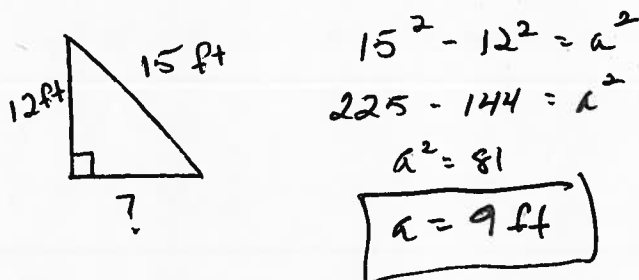 12ft
15 ft
?
15² - 12² = a²
225 - 144 = a²
a² = 81
a = 9 ft